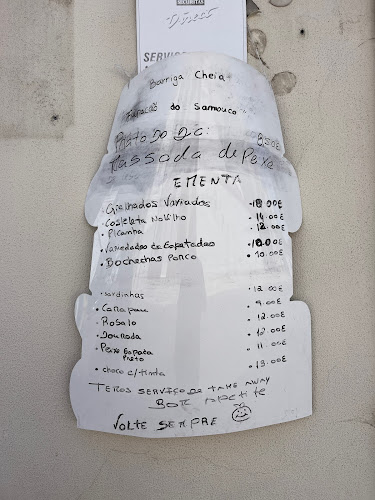 SECURITAS
Direct
SERVIÇO
Barriga Cheia
"Furacão do Samouco"
Prato do Dia: 8,50€
Massada de Peixe
EMENTA
• Grelhados Variados • 18.00€
• Costeleta Novilho • 14.00€
• Picanha • 12.00€
• Variedades de Espetadas • 10.00€
• Bochechas Porco • 10.00€
• Sardinhas • 12.00€
• Carapau • 9.00€
• Robalo • 12.00€
• Dourada • 12.00€
• Peixe Espada • 11.00€
Preto
• choco c/tinta • 13.00€
TEMOS SERVIÇO DE TAKE AWAY
BOM APETITE
VOLTE SEMPRE